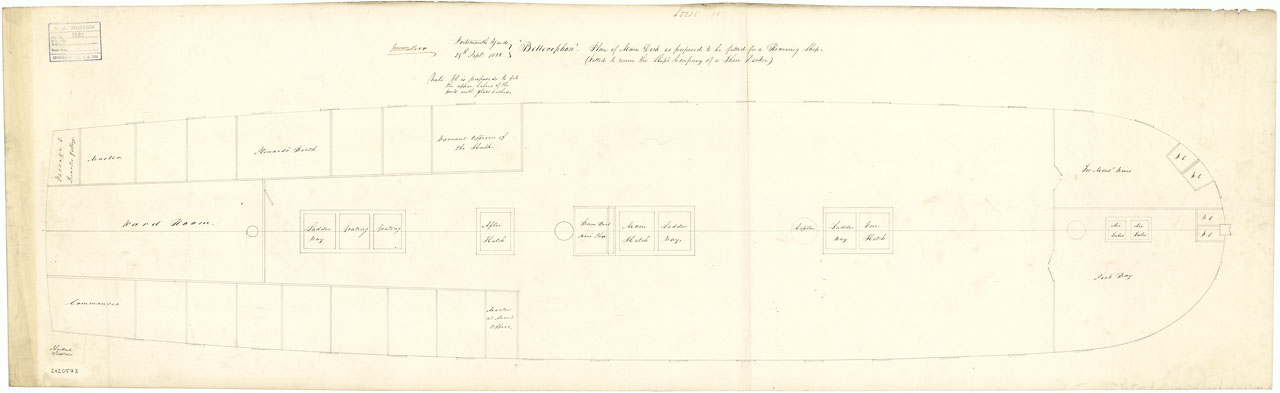 Portsmouth Yard
28th Sept. 1848
"Bellerophon". Plan of Main Deck as proposed to be fitted for a Receiving Ship.
(Fitted to receive the Ship's Company of a Three Decker)
Note It is proposed to fit
the upper halves of the
Ports with glass Sashes.
Passage &
Quarter Gallery
Master
Steward's Berth
Warrant Officer of
the Month
Ward Room.
Ladder
Way
Grating
Grating
After
Hatch
Main
Hatch
Ladder
Way.
Capstan
Ladder
Way
Fore
Hatch
For Mens' Use
W C
W C
W C
W C
Air
Air
Sick Bay
Commander
Master
at Arms
Office.